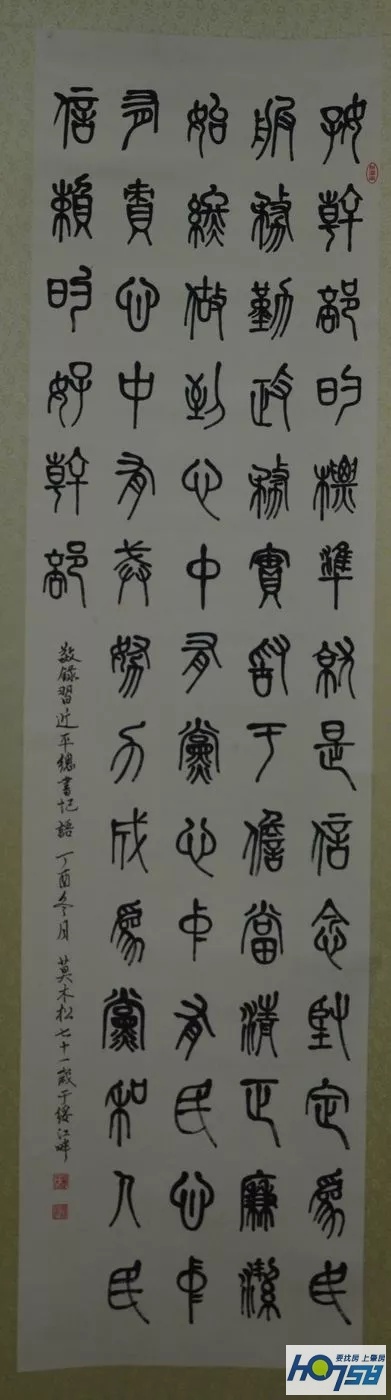 好幹部的標準就是信念堅定爲民
服務勤政務實敢于擔當清正廉潔
始終做到心中有黨心中有民心中
有責心中有戒努力成爲黨和人民
信賴的好幹部
敬錄習近平總書記語 丁酉冬月 莫木松七十一歲于綏江畔
要找房 上肇房
HO758